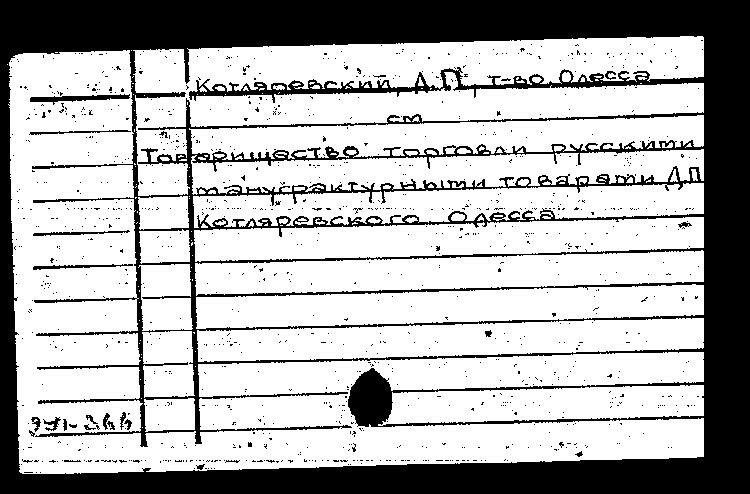 Котляревский, Д.П., т-во, Одесса
см
Товарищество торговли русскими
мануфрактурными товарами Д.П.
Котляревского Одесса